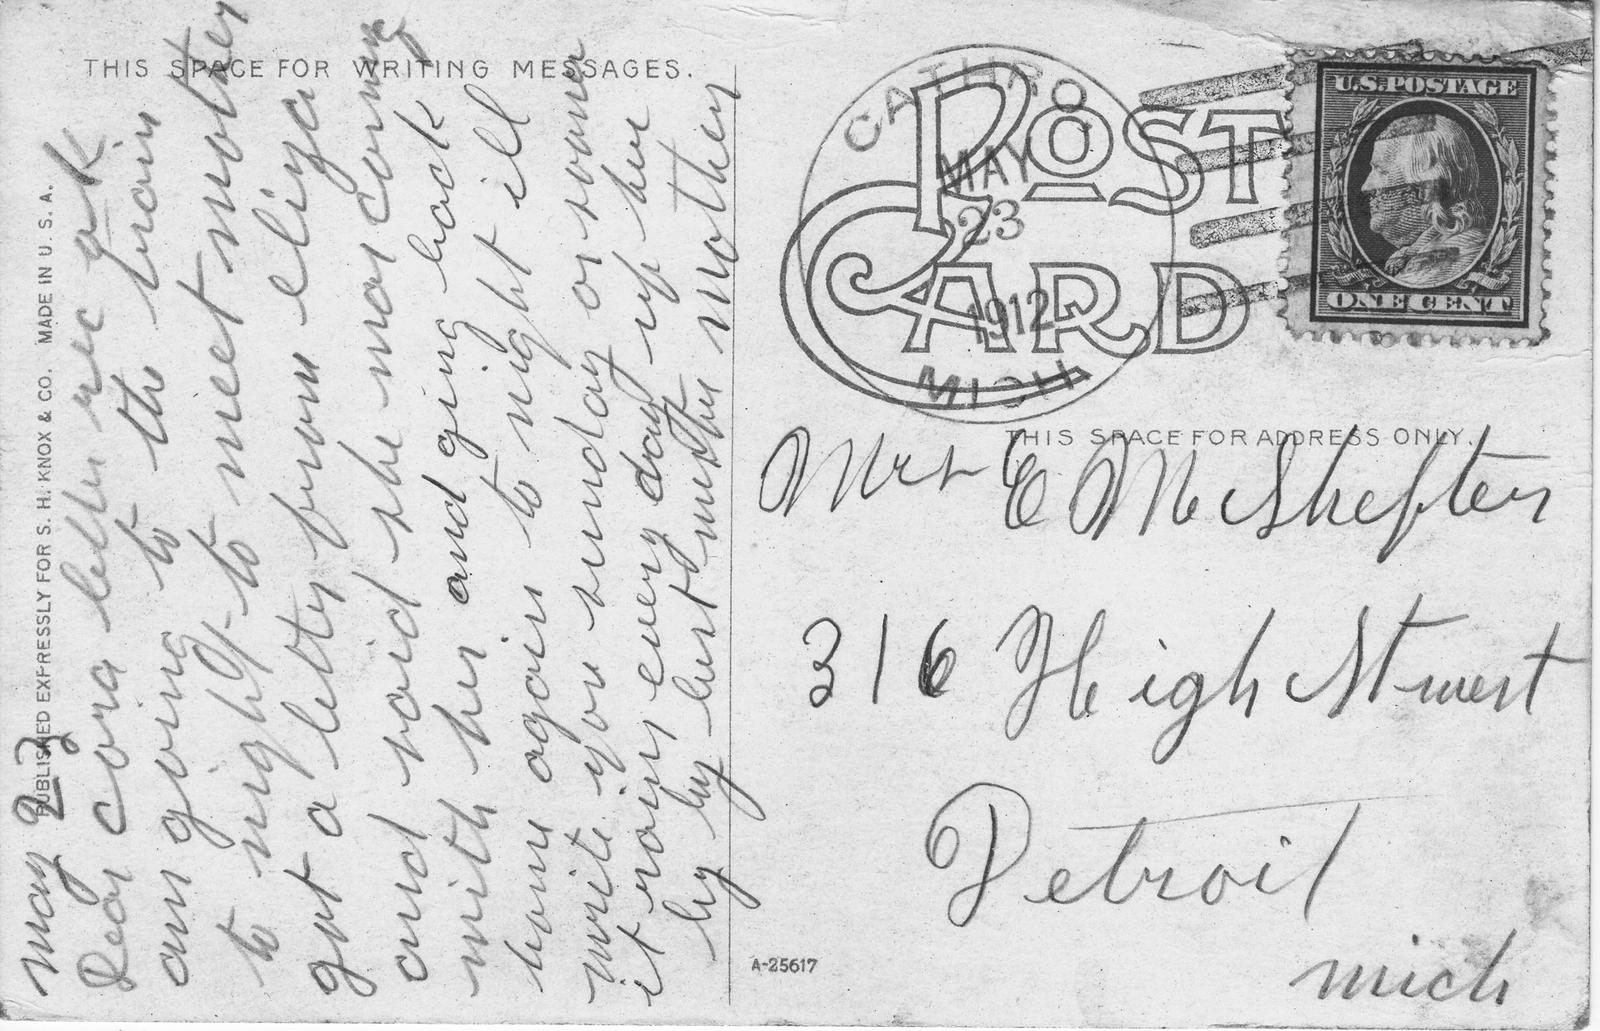 THIS SPACE FOR WRITING MESSAGES.
PUBLISHED EXPRESSLY FOR S. H. KNOX & CO. MADE IN U. S. A.
may 23
Dear cora letter rec ok
am going to to the train
to night to meet mother
got a letter from eliza
and said she was coming
with her and going back
home again to night il
write you sunday or sooner
it rains every day up her
by by best mother
CATHRO
MAY
23
1912
MICH
POST
CARD
U.S. POSTAGE
ONE CENT
THIS SPACE FOR ADDRESS ONLY.
Mrs E McShefter
316 High St west
Detroit
mich
A-25617